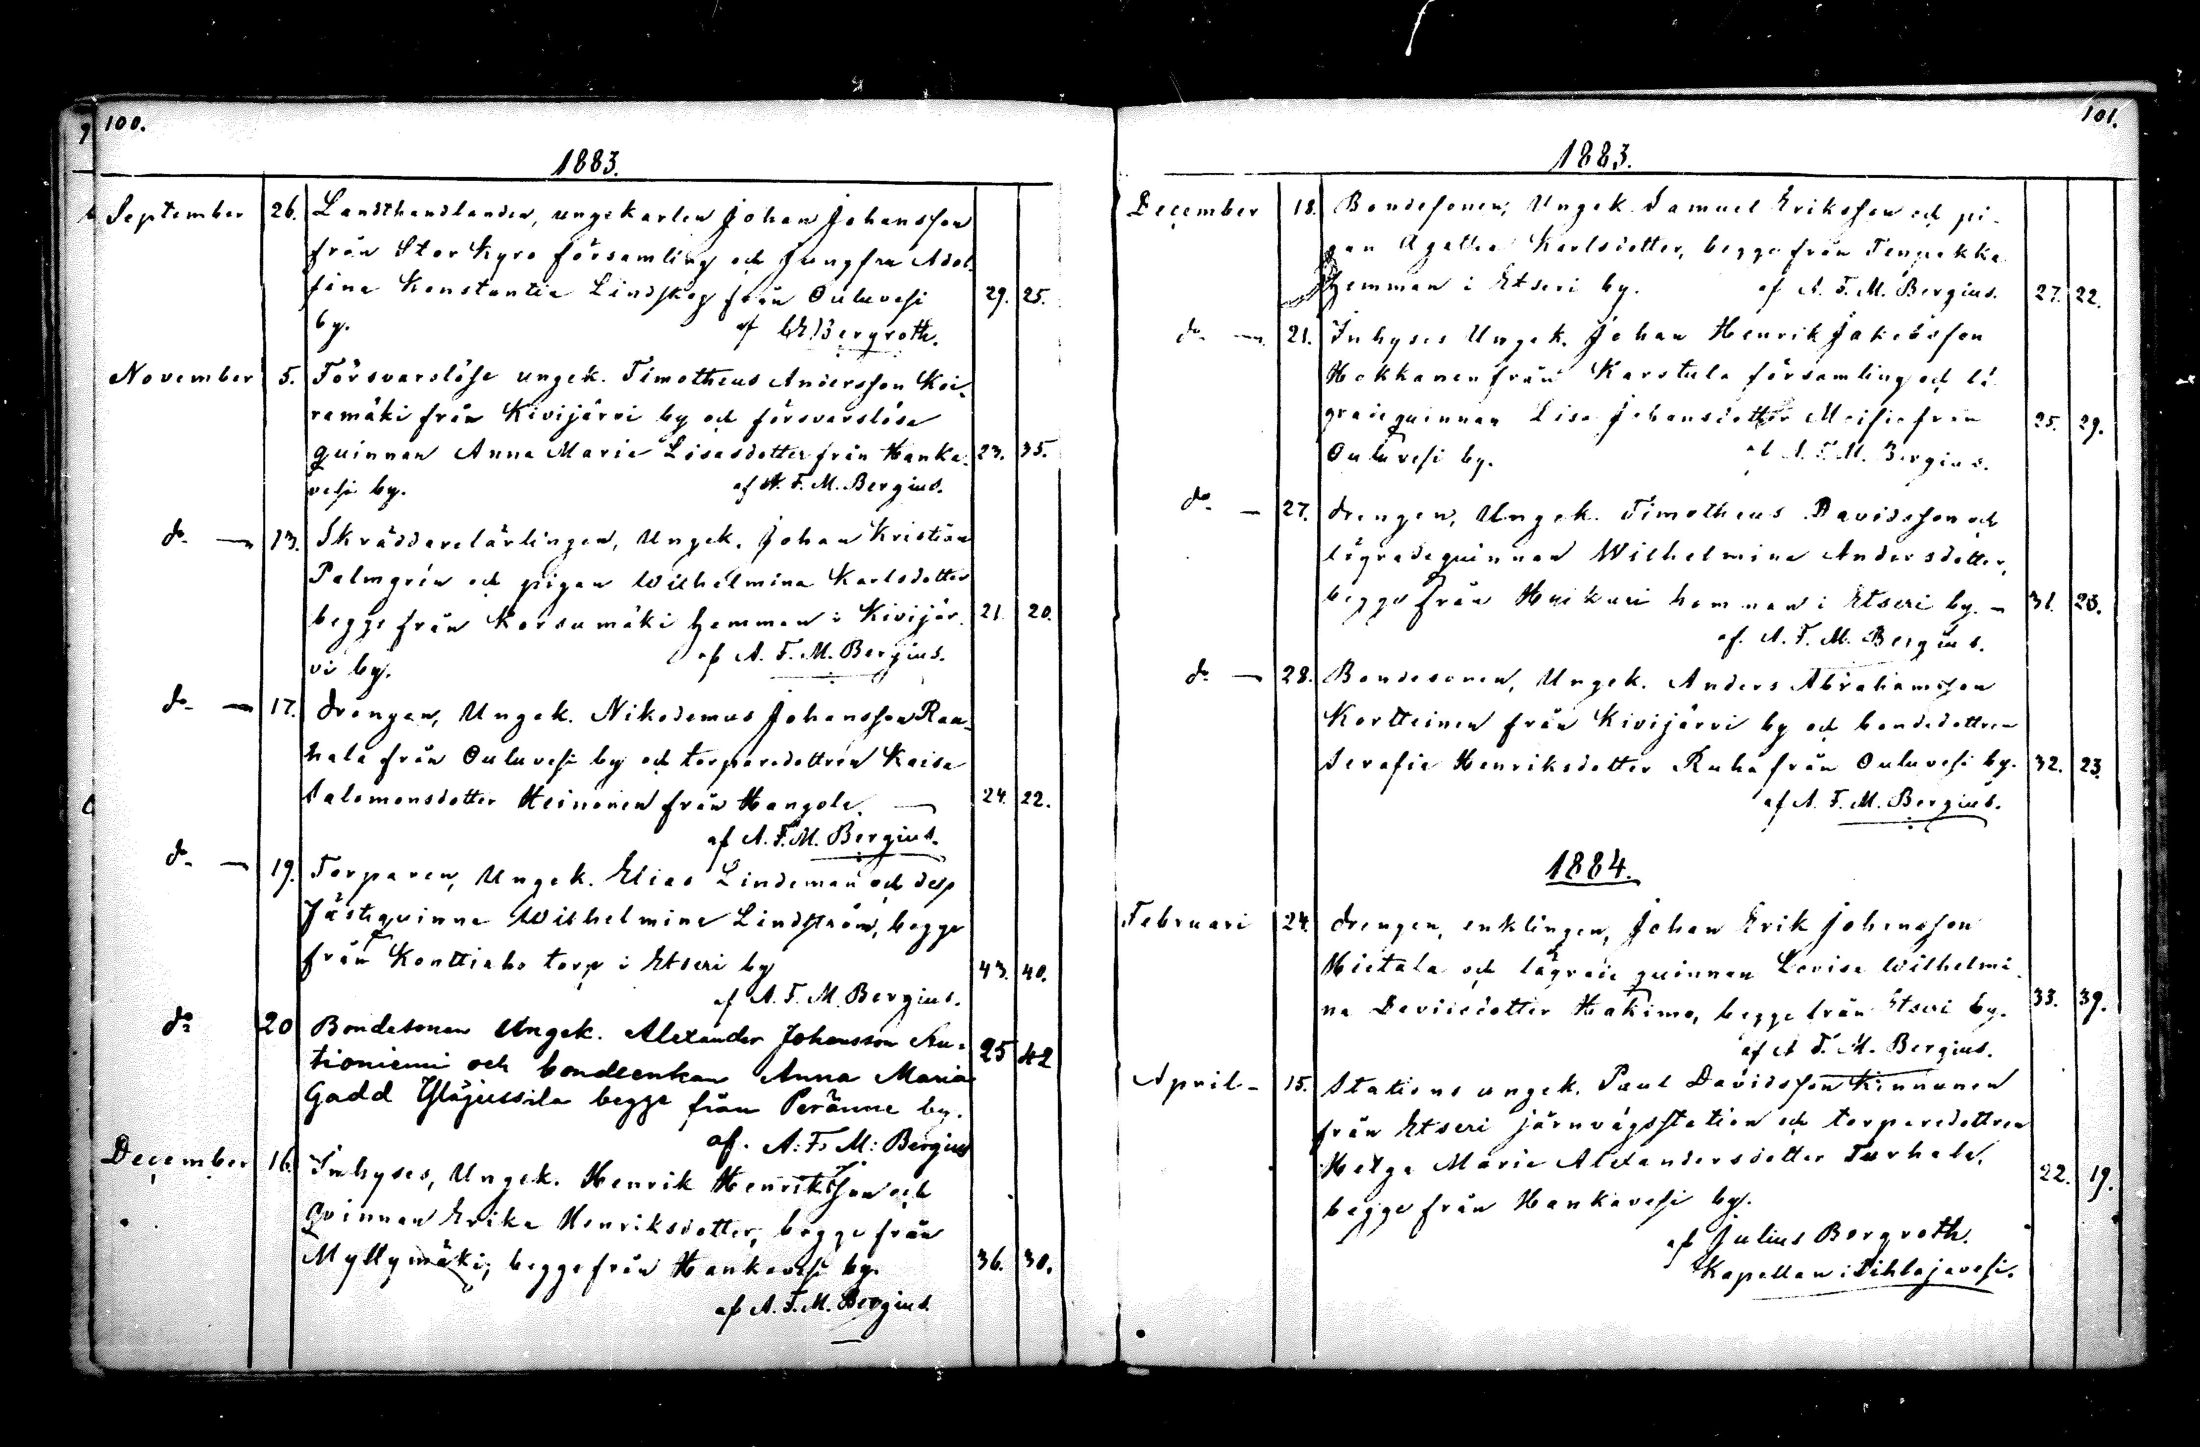 100.
1883.
September 26. Landthandlanden, ungekarlen Johan Johansson
från Stor Kyro församling och Jungfru Adol-
fina Konstantia Lindskog från Ouluvesi 29. 25.
by. af Bergroth.
November 5. Försvarslöse ungek. Timotheus Andersson Koi-
ramäki från Kivijärvi by och försvarslösa
quinnan Anna Maria Lisasdotter från Hanka- 23. 35.
vesi by. af A. F. M. Bergius.
do — 13. Skräddarelärlingen, Ungek. Johan Kristian
Palmgrén och pigan Wilhelmina Karlsdotter
begge från Korsumäki hemman i Kivijär- 21. 20.
vi by. af A. F. M. Bergius.
do — 17. Drengen, Ungek. Nikodemus Johansson Rau-
hala från Ouluvesi by och torparedottren Kaisa
Salomonsdotter Heinonen från Hangola. — 24. 22.
af A. F. M. Bergius.
do — 19. Torparen, Ungek. Elias Lindeman och desp
Fästequinna Wilhelmina Lindström, begge
från Konttiaho torp i Etseri by 43. 40.
af A. F. M. Bergius.
do 20 Bondesonen Ungek. Alexander Johansson Au-
tioniemi och bondeenkan Anna Maria 25 42
Gadd Ylöjussila begge från Peränne by.
af. A: F: M: Bergius
December 16. Inhyses, Ungek. Henrik Henriksson och
Qvinnan Erika Henriksdotter, begge från
Myllymäki, begge från Hankavesi by. 36. 30.
af A. F. M. Bergius.
101.
1883.
December 18. Bondesonen, Ungek. Samuel Eriksson och pi-
gan Agatha Karlsdotter, begge från Tenpakka
hemman i Etseri by. af A. F. M. Bergius. 27. 22.
do — 21. Inhyses Ungek. Johan Henrik Jakobsson
Hokkanen från Karstula församling och lä-
grade quinnan Lisa Johansdotter Maisia från 25. 29.
Ouluvesi by. af A. F. M. Bergius.
do — 27. Drengen, Ungek. Timotheus Davidsson och
lägrade quinnan Wilhelmina Andersdotter,
begge från hemman i Etseri by. — 31. 23.
af. A. F. M. Bergius.
do — 28. Bondesonen, Ungek. Anders Abrahamsson
Kortteinen från Kivijärvi by och bondedottren
Serafia Henriksdotter Ruha från Ouluvesi by. 32. 23.
af A. F. M. Bergius.
1884.
Februari 24. Drengen, enklingen, Johan Erik Johansson
Hietala och lägrade quinnan Lovisa Wilhelmi-
na Davidsdotter Hakimo, begge från Etseri by. 33. 39.
af A F. M. Bergius.
April — 15. Stations ungek. Paul Davidsson Kinnunen
från Etseri järnvägsstation och torparedottren
Helga Maria Alexandersdotter Turhala,
begge från Hankavesi by. 22. 19.
af Julius Bergroth.
Kapellan i Pihlajavesi.